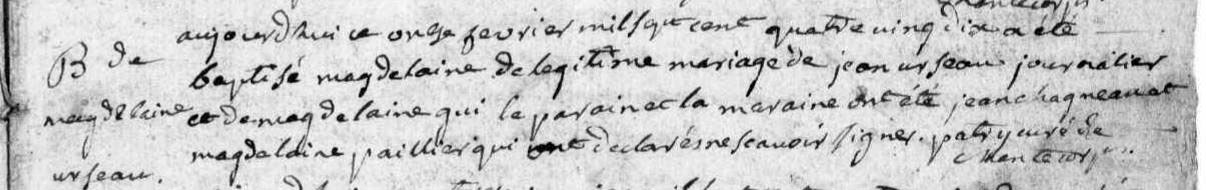 aujourd'hui ce onze fevrier mil sept cent quatre vingt dix a été
B de
baptisé magdelaine de legitime mariage de jean urseau journalier
magdelaine
et de magdelaine qui le parain et la maraine ont été jean chagneau et
magdelaine paillier qui ont declarés ne scavoir signer. patry curé de
urseau.